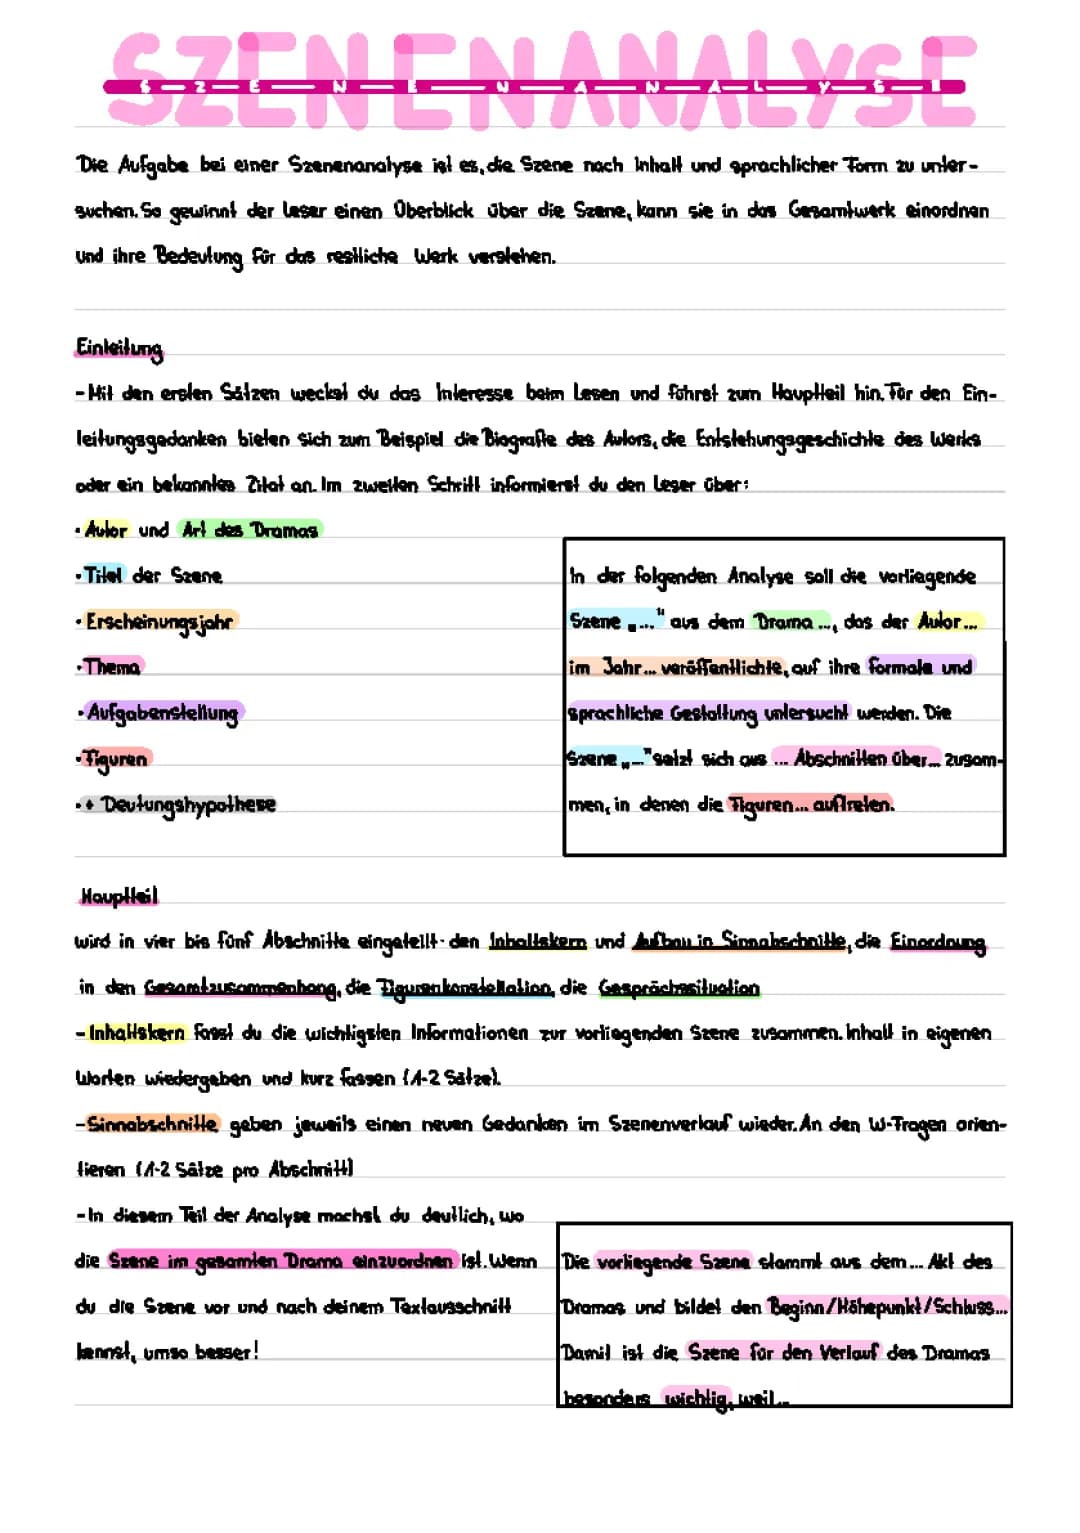 SZENENANALYSE
S-Z-E-N-E-N-A-N-A-L-Y-S-E
Die Aufgabe bei einer Szenenanalyse ist es, die Szene nach Inhalt und sprachlicher Form zu unter-
suchen. So gewinnt der Leser einen Überblick über die Szene, kann sie in das Gesamtwerk einordnen
und ihre Bedeutung für das restliche Werk verstehen.
Einleitung
- Mit den ersten Sätzen weckst du das Interesse beim Lesen und führst zum Hauptteil hin. Für den Ein-
leitungsgedanken bieten sich zum Beispiel die Biografie des Autors, die Entstehungsgeschichte des Werks
oder ein bekanntes Zitat an. Im zweiten Schritt informierst du den Leser über:
• Autor und Art des Dramas
• Titel der Szene
• Erscheinungsjahr
• Thema
• Aufgabenstellung
• Figuren
• + Deutungshypothese
In der folgenden Analyse soll die vorliegende
Szene „..." aus dem Drama ..., das der Autor...
im Jahr... veröffentlichte, auf ihre formale und
sprachliche Gestaltung untersucht werden. Die
Szene „..." setzt sich aus ... Abschnitten über... zusam-
men, in denen die Figuren... auftreten.
Hauptteil
wird in vier bis fünf Abschnitte eingeteilt: den Inhaltskern und Aufbau in Sinnabschnitte, die Einordnung
in den Gesamtzusammenhang, die Figurenkonstellation, die Gesprächssituation
- Inhaltskern fasst du die wichtigsten Informationen zur vorliegenden Szene zusammen. Inhalt in eigenen
Worten wiedergeben und kurz fassen (1-2 Sätze).
- Sinnabschnitte geben jeweils einen neuen Gedanken im Szenenverlauf wieder. An den W-Fragen orien-
tieren (1-2 Sätze pro Abschnitt)
- In diesem Teil der Analyse machst du deutlich, wo
die Szene im gesamten Drama einzuordnen ist. Wenn
du die Szene vor und nach deinem Textausschnitt
kennst, umso besser!
Die vorliegende Szene stammt aus dem ... Akt des
Dramas und bildet den Beginn/Höhepunkt/Schluss...
Damit ist die Szene für den Verlauf des Dramas
besonders wichtig, weil...